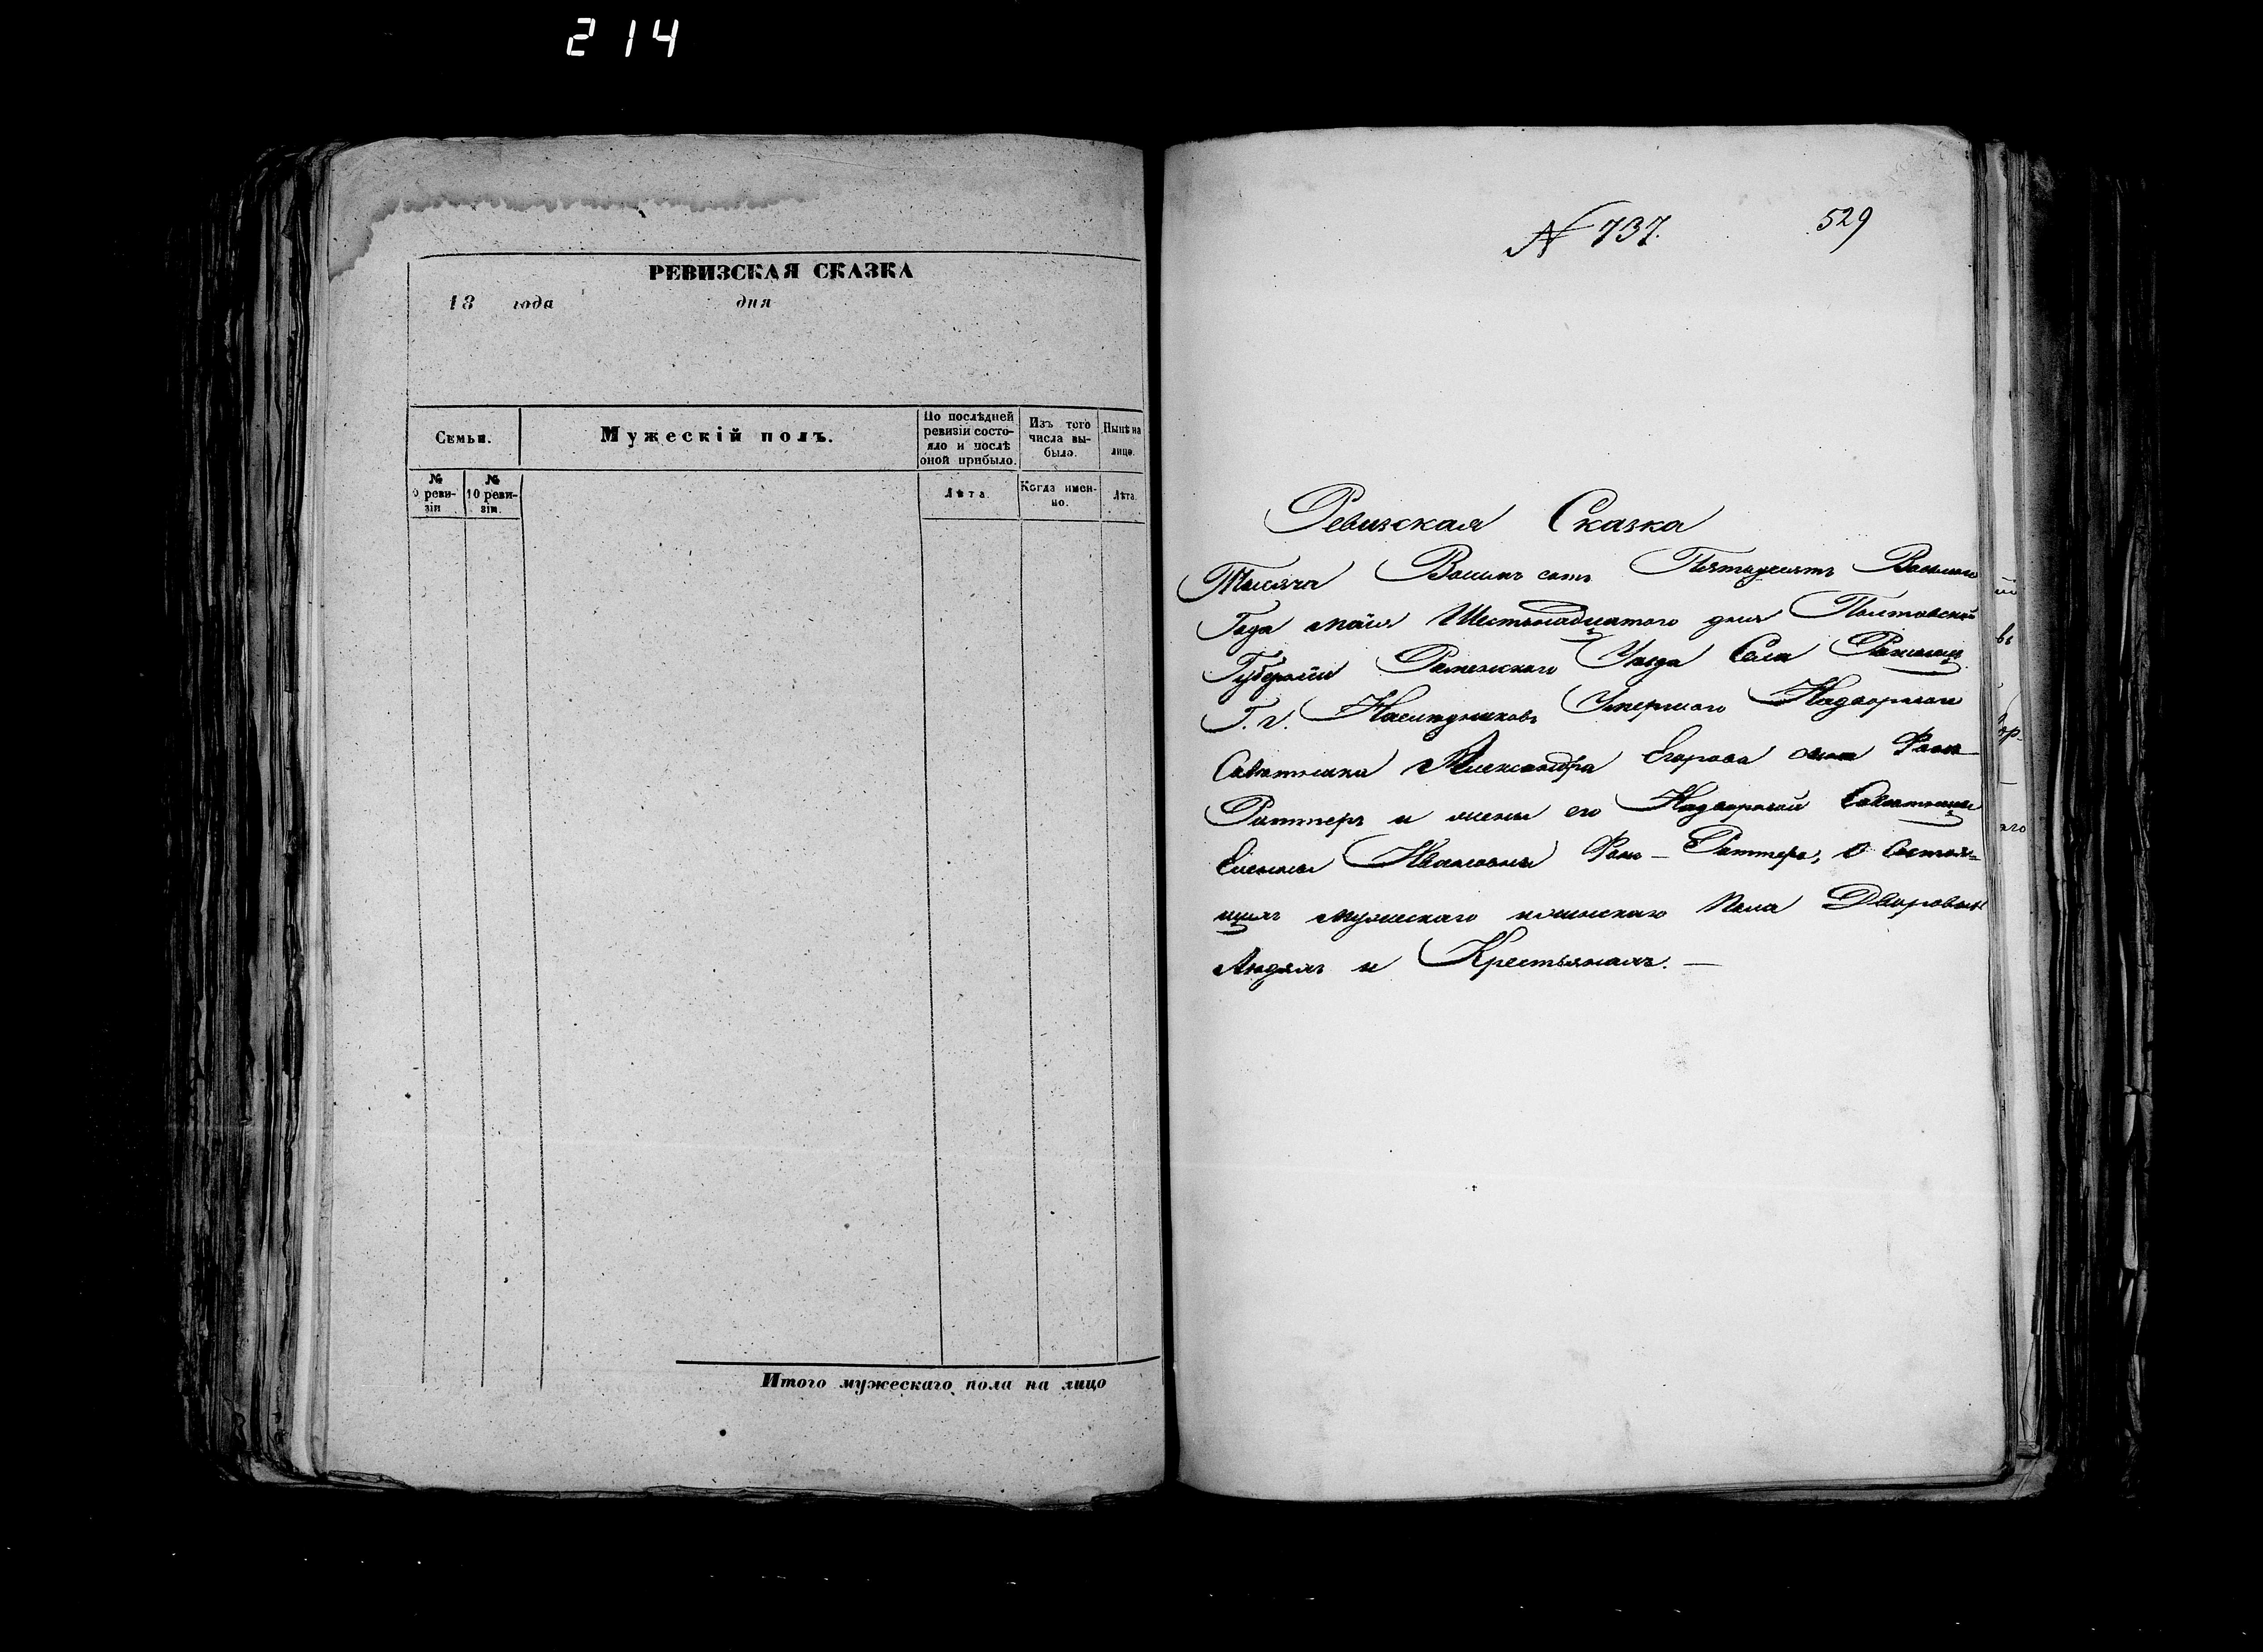 214
РЕВИЗСКАЯ СКАЗКА
18 года дня
Семьи.
Мужескій полъ.
По послѣдней ревизіи состояло и послѣ оной прибыло.
Изъ того числа выбыло.
Нынѣ на лицо.
№ 9 ревизіи
№ 10 ревизіи.
Лѣта.
Когда именно.
Лѣта.
Итого мужескаго пола на лицо
N 737.
529
Ревизская Сказка
Тысяча Восимъ сотъ Пятдесятъ Восьмого
Года маія Шестьнадцатого дня Полтавской
Губерніи Роменского Уезда Села
Г. г. Наследниковъ Умершого Надворного
Советника Александра Егорова сына Фонъ
Раттеръ и жены его Надворной Советницы
Елены Ивановны Фонъ-Раттеръ, о Состоя-
щихъ мужескаго и женскаго Пола Дворовыхъ
Людяхъ и Крестьянахъ. —